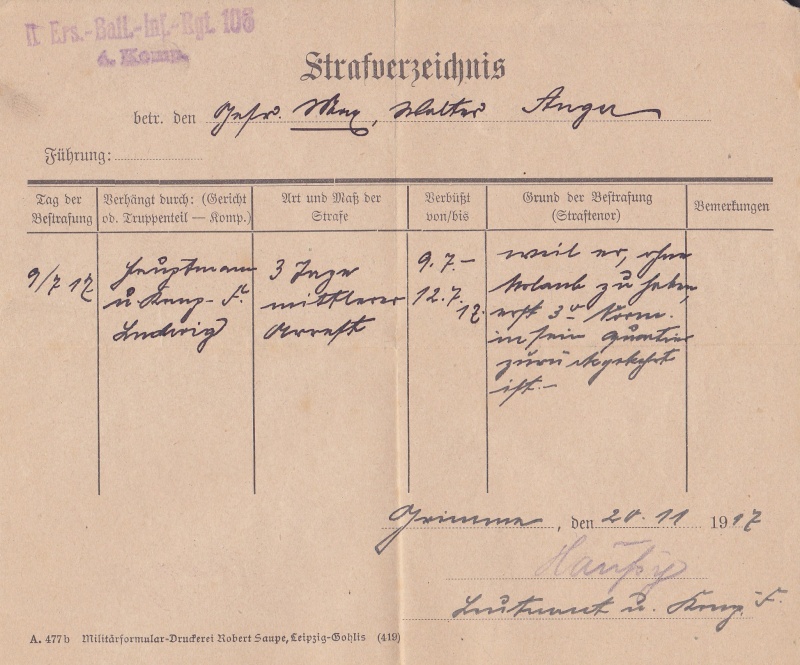 II. Ers.-Batl.-Inf.-Rgt. 106
4. Komp.
Strafverzeichnis
betr. den Gefr. Max, Walter Anger
Führung:
Tag der Bestrafung
Verhängt durch: (Gericht od. Truppenteil — Komp.)
Art und Maß der Strafe
Verbüßt von/bis
Grund der Bestrafung (Straftenor)
Bemerkungen
9/7 17
Hauptmann
u. Komp. F.
Ludwig
3 Tage
mittlerer
Arrest
9. 7. –
12. 7.
17.
weil er, ohne
Urlaub zu haben,
erst 3 Vorm.
in sein Quartier
zurückgekehrt
ist. –
Grimma, den 20. 11 1917
Leutnant u. Komp. F.
A. 477b Militärformular-Druckerei Robert Saupe, Leipzig-Gohlis (419)